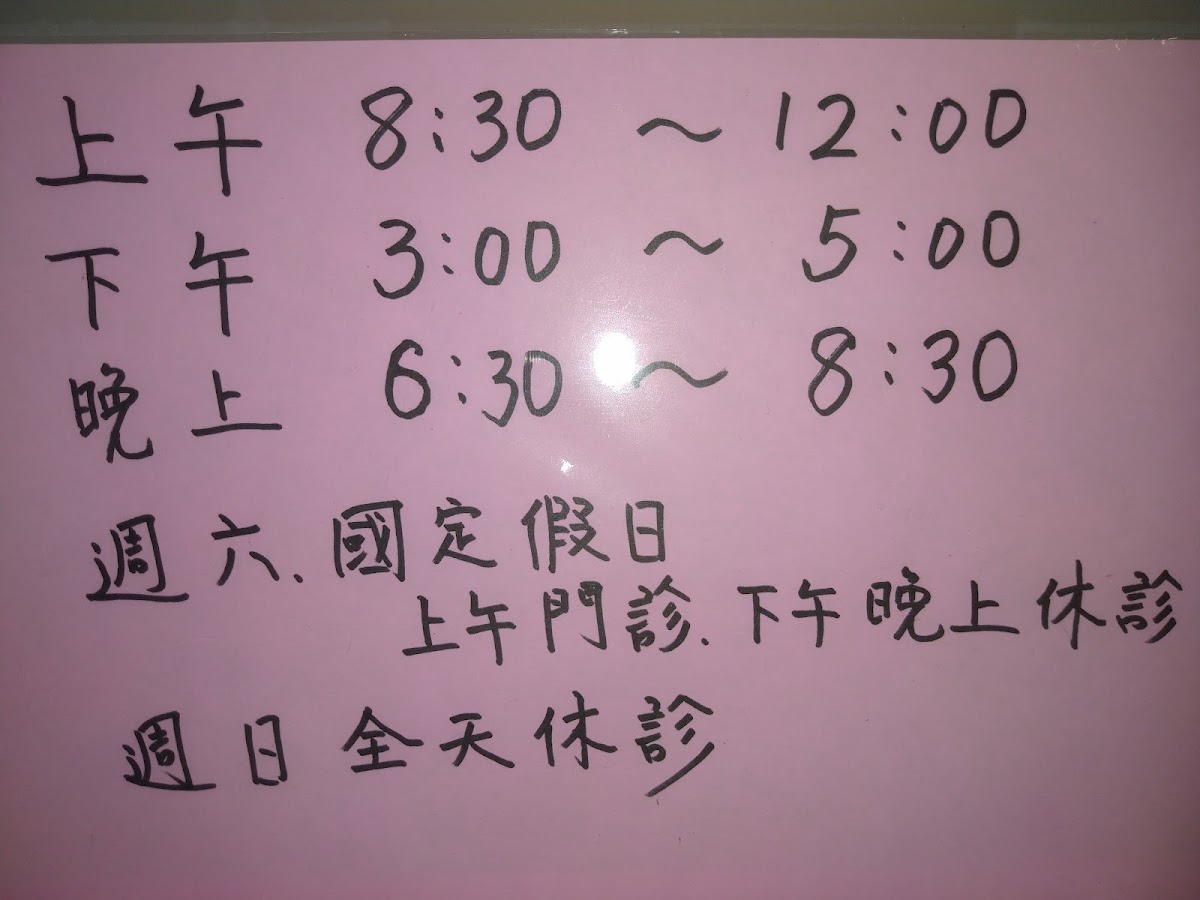 上午 8:30 ~ 12:00
下午 3:00 ~ 5:00
晚上 6:30 ~ 8:30
週六.國定假日
上午門診.下午晚上休診
週日全天休診